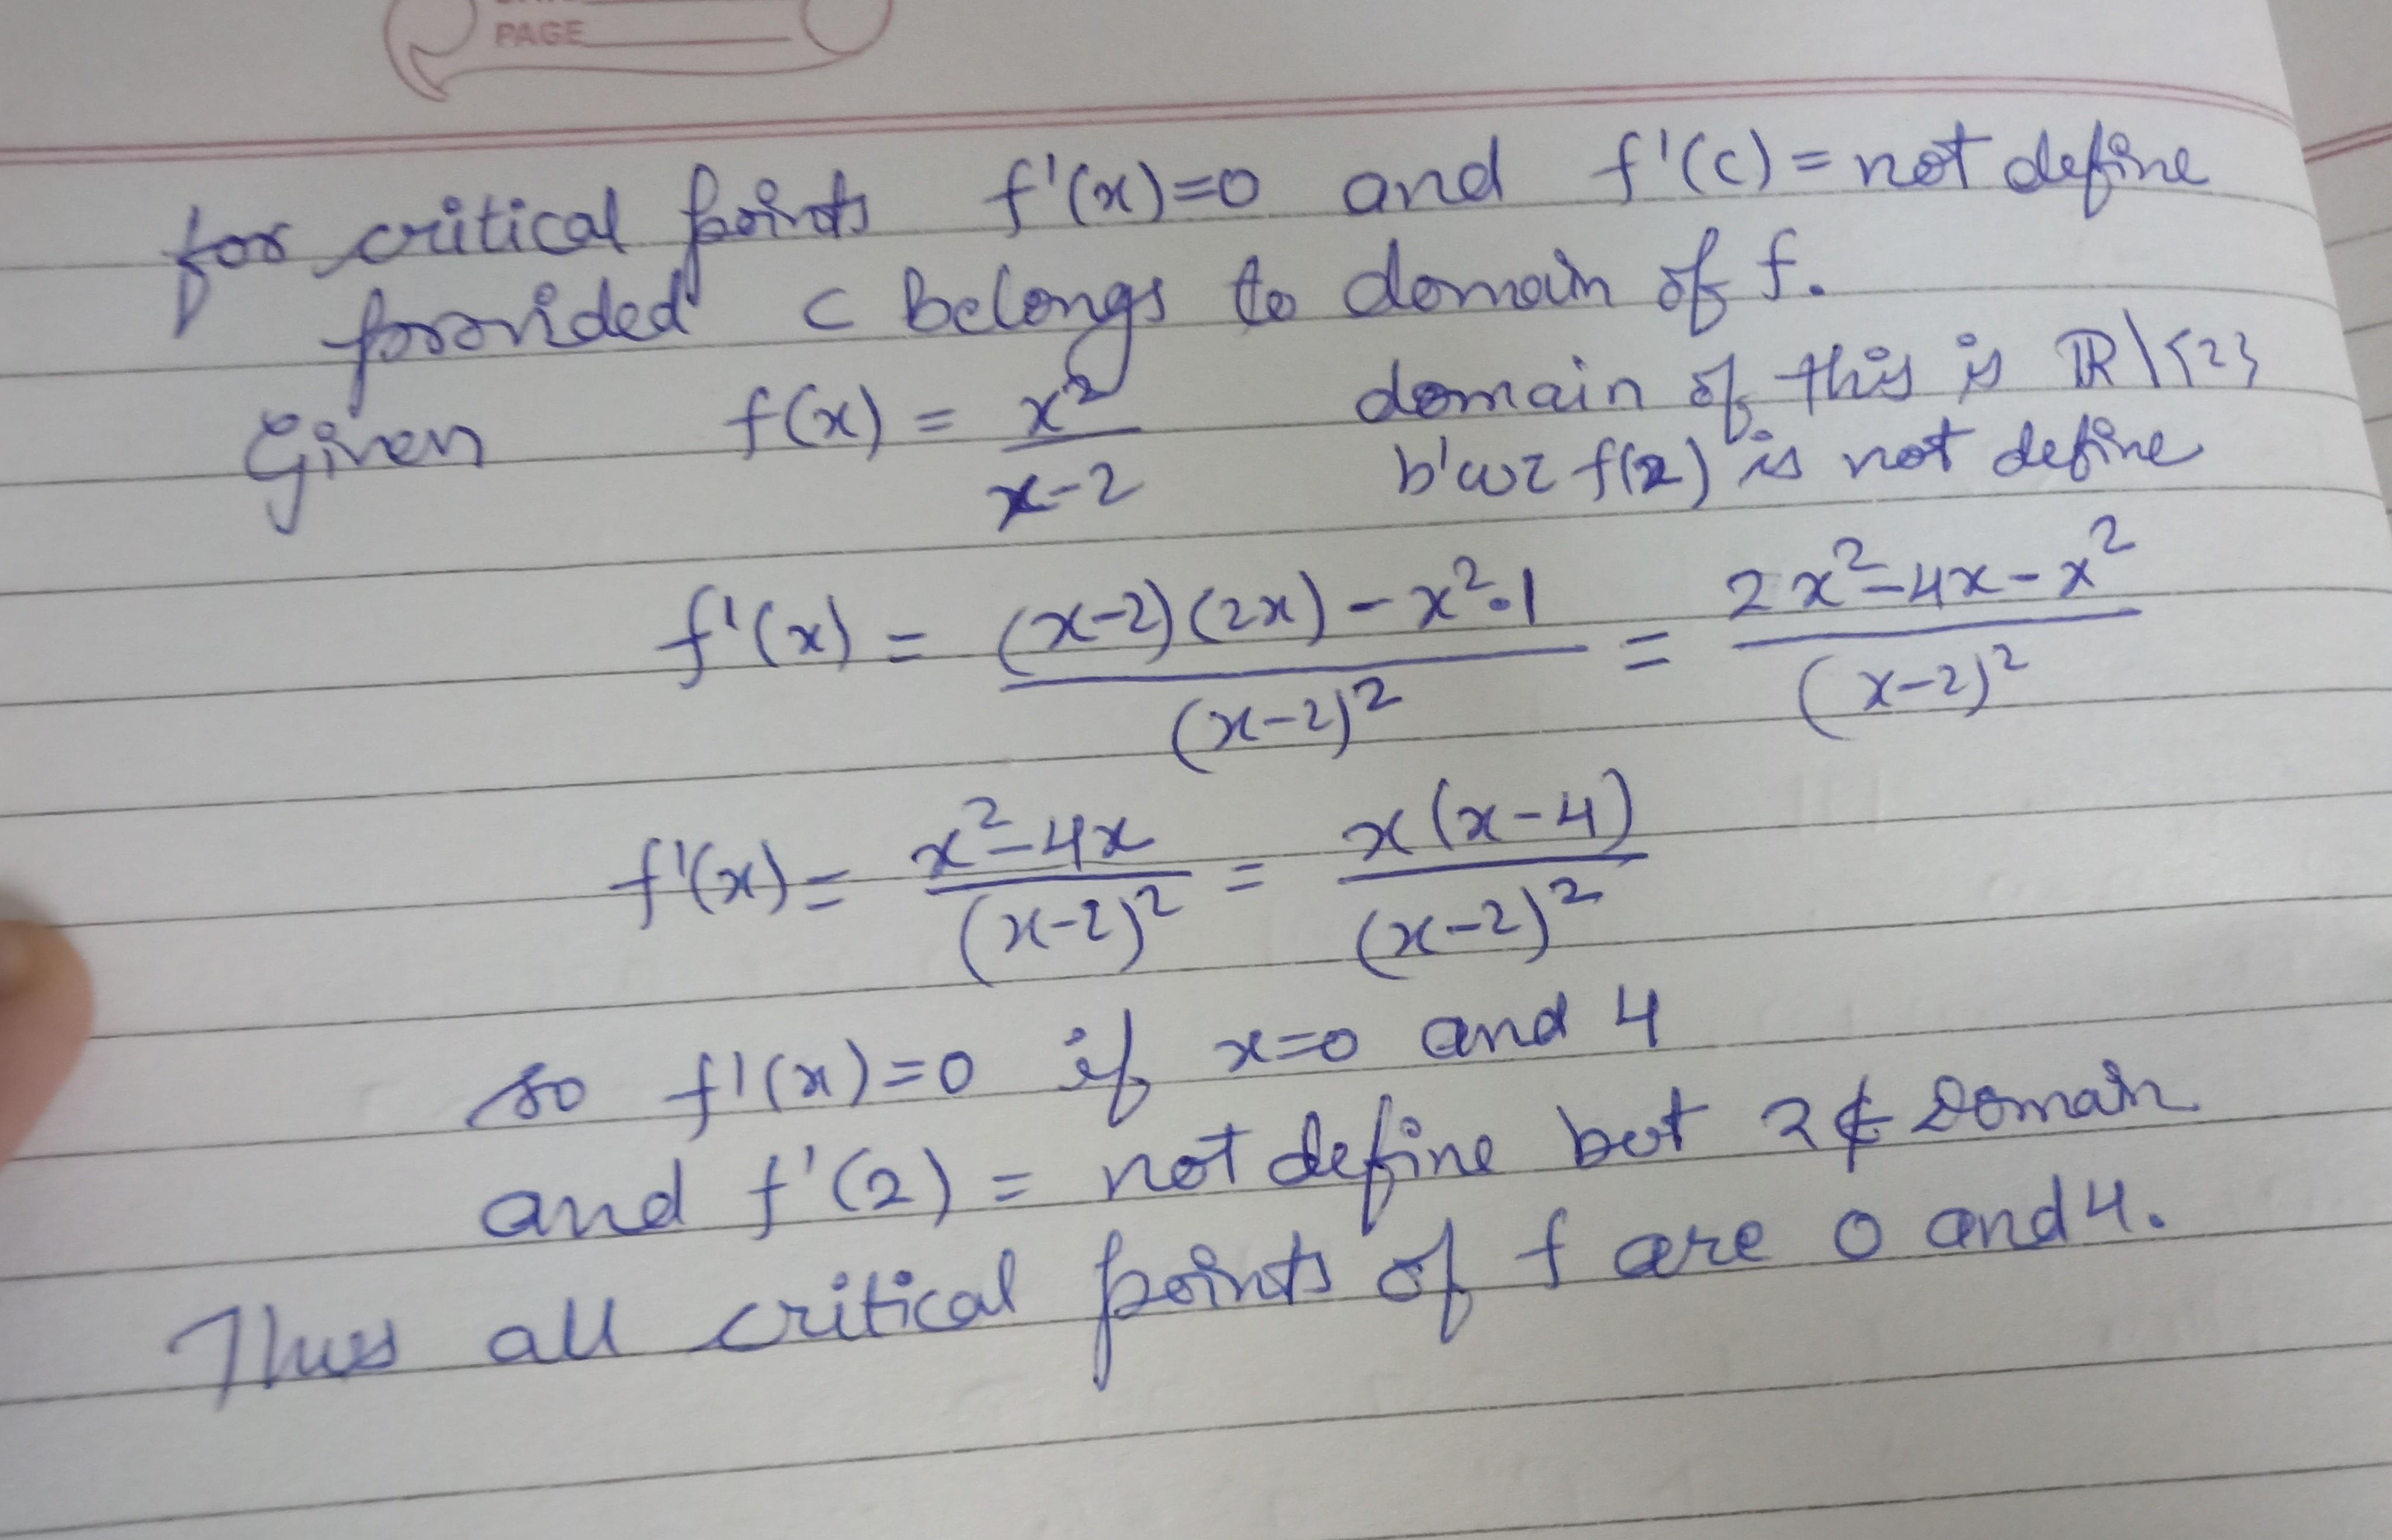 PAGE
for critical points f'(x)=0 and f'(c) = not define
provided c belongs to domain of f.
Given f(x) = x²/(x-2) domain of this is ℝ\{2}
b'coz f(2) is not define
f'(x) = ((x-2)(2x) - x²·1)/(x-2)² = (2x²-4x-x²)/(x-2)²
f'(x) = (x²-4x)/(x-2)² = x(x-4)/(x-2)²
so f'(x)=0 if x=0 and 4
and f'(2) = not define but 2∉ Domain
Thus all critical points of f are 0 and 4.